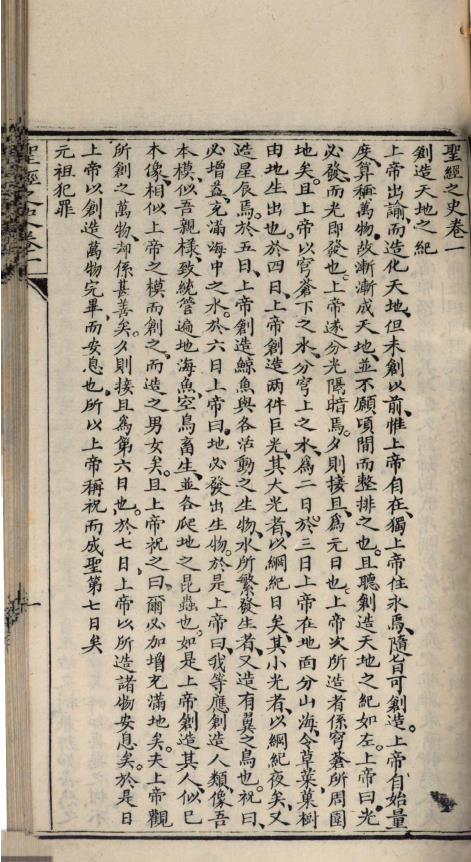 聖經之史卷一
創造天地之紀
上帝出諭而造化天地、但未創以前、惟上帝自在、獨上帝住永焉、隨旨可創造。上帝自始量
度、算稱萬物、故漸漸成天地、並不願頃間而整排之也。且聽創造天地之紀如左。上帝曰、光
必發、而光即發也。上帝遂分光陽暗焉。夕則接旦、爲元日也。上帝次所造者、係穹蒼所周圍
地矣。且上帝以穹蒼下之水、分穹上之水、爲二日。於三日上帝在地面分山海、令草菜菓樹
由地生出也。於四日、上帝創造兩件巨光、其大光者、以綱紀日矣、其小光者、以綱紀夜矣、又
造星辰焉。於五日、上帝創造鯨魚與各活動之生物、水所繁發生者、又造有翼之鳥也。祝曰、
必增益、充滿海中之水。於六日上帝曰、地必發出生物。於是上帝曰、我等應創造人類、像吾
本模、似吾親樣、致統管遍地海魚、空鳥畜生、並各爬地之昆蟲也。如是上帝創造其人、似已
本像、相似上帝之模而創之、而造之男女矣。且上帝祝之曰、爾必加增充滿地矣。夫上帝觀
所創之萬物、却係甚善矣。夕則接旦、爲第六日也。於七日、上帝以所造諸物安息矣。於是日
上帝以創造萬物完畢、而安息也。所以上帝稱祝而成聖第七日矣
元祖犯罪